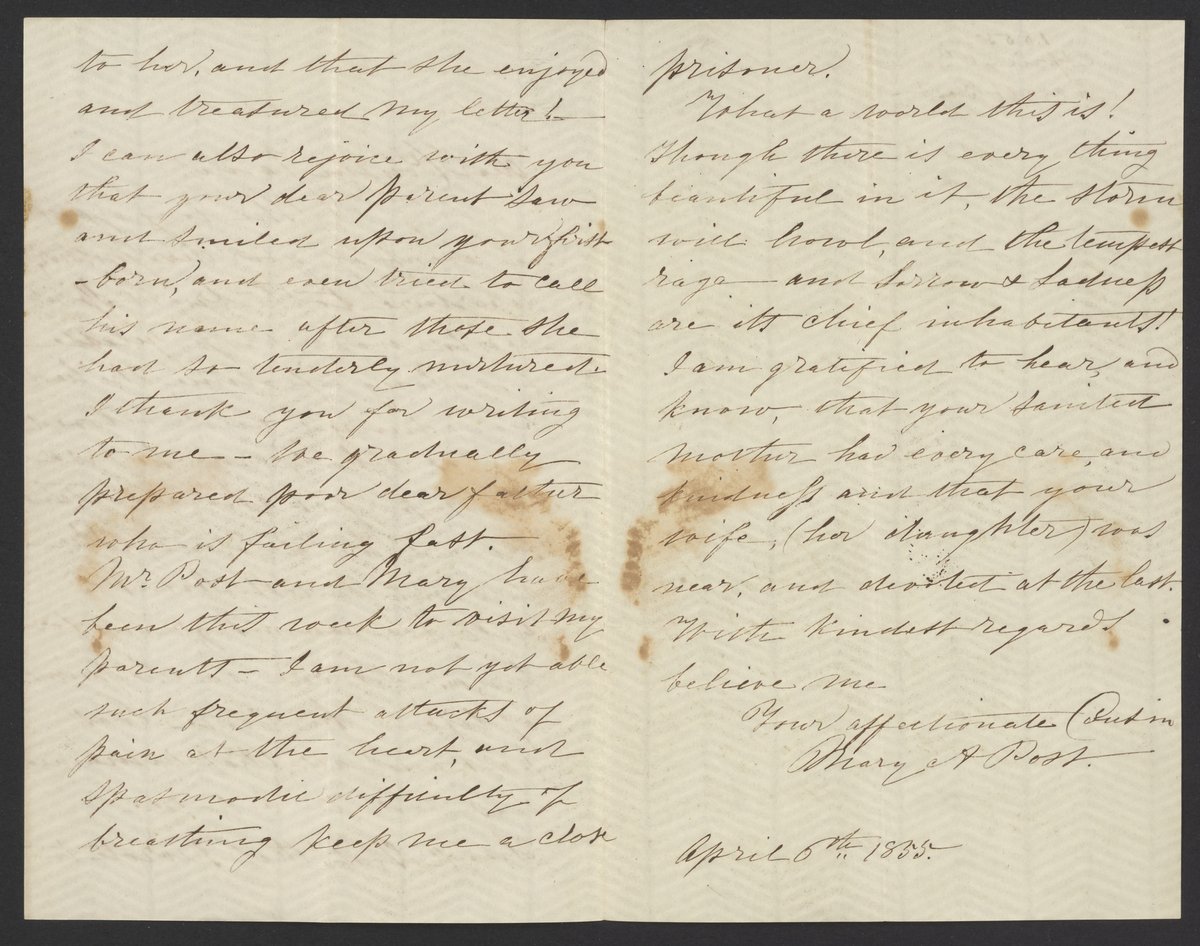 to her, and that she enjoyed
and treasured my letter!—
I can also rejoice with you
that your dear parent saw
and smiled upon your first
-born, and even tried to call
his name after those she
had so tenderly nurtured.
I thank you for writing
to me — We gradually
prepared poor dear father
who is failing fast.
Mr. Post and Mary have
been this week to visit my
parents — I am not yet able
such frequent attacks of
pain at the heart, and
spasmodic difficulty of
breathing keep me a close
prisoner.
What a world this is!
Though there is every thing
beautiful in it, the storm
will howl, and the tempest
rage — and sorrow & sadness
are its chief inhabitants!
I am gratified to hear, and
know, that your sainted
mother had every care, and
kindness and that your
wife, (her daughter) was
near, and devoted at the last.
With kindest regards
believe me
Your affectionate Cousin
Mary A Post.
April 6th. 1855.